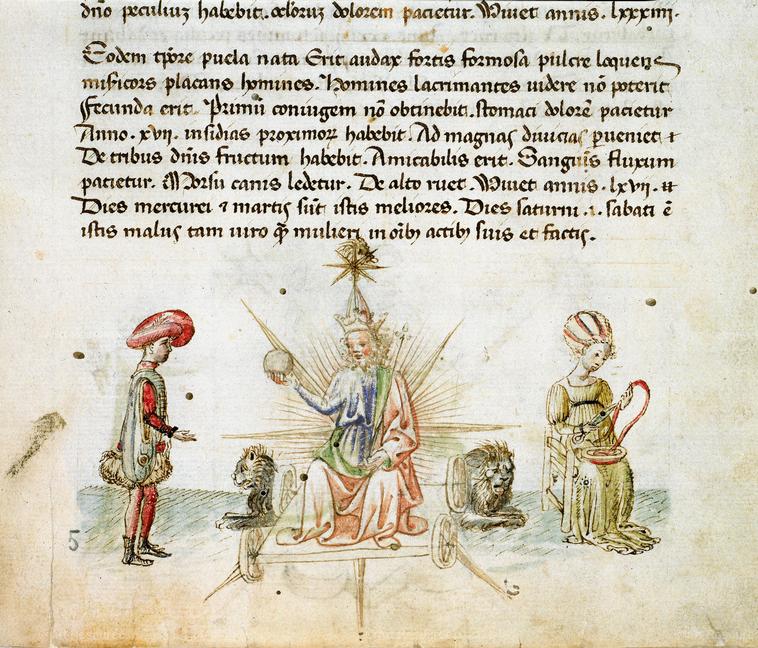 dño peculiuʒ habebit. oc̃loruʒ dolorem pacietur. Viuet annis. lxxxiiii.
Eodem tp̃ore puela nata Erit audax fortis formosa pulcre loquens
misicors placans homines. Homines lacrimantes uidere nõ poterit
fecunda erit. Primũ coniugem nõ obtinebit. stomaci dolorẽ pacietur
Anno. xvii. insidias proximoꝝ habebit. Ad magnas diuicias ꝑueniet ⁊
De tribus dñis fructum habebit. Amicabilis erit. Sanguĩs fluxum
pacietur. Morsu canis ledetur. De alto ruet. Viuet annis. lxvii.
Dies mercurei ⁊ martis sũt istis meliores. Dies saturni .i. sabati ẽ
istis malus tam uiro ꝙ̃ mulieri in oĩbꝫ actibꝫ suis et factis.
5